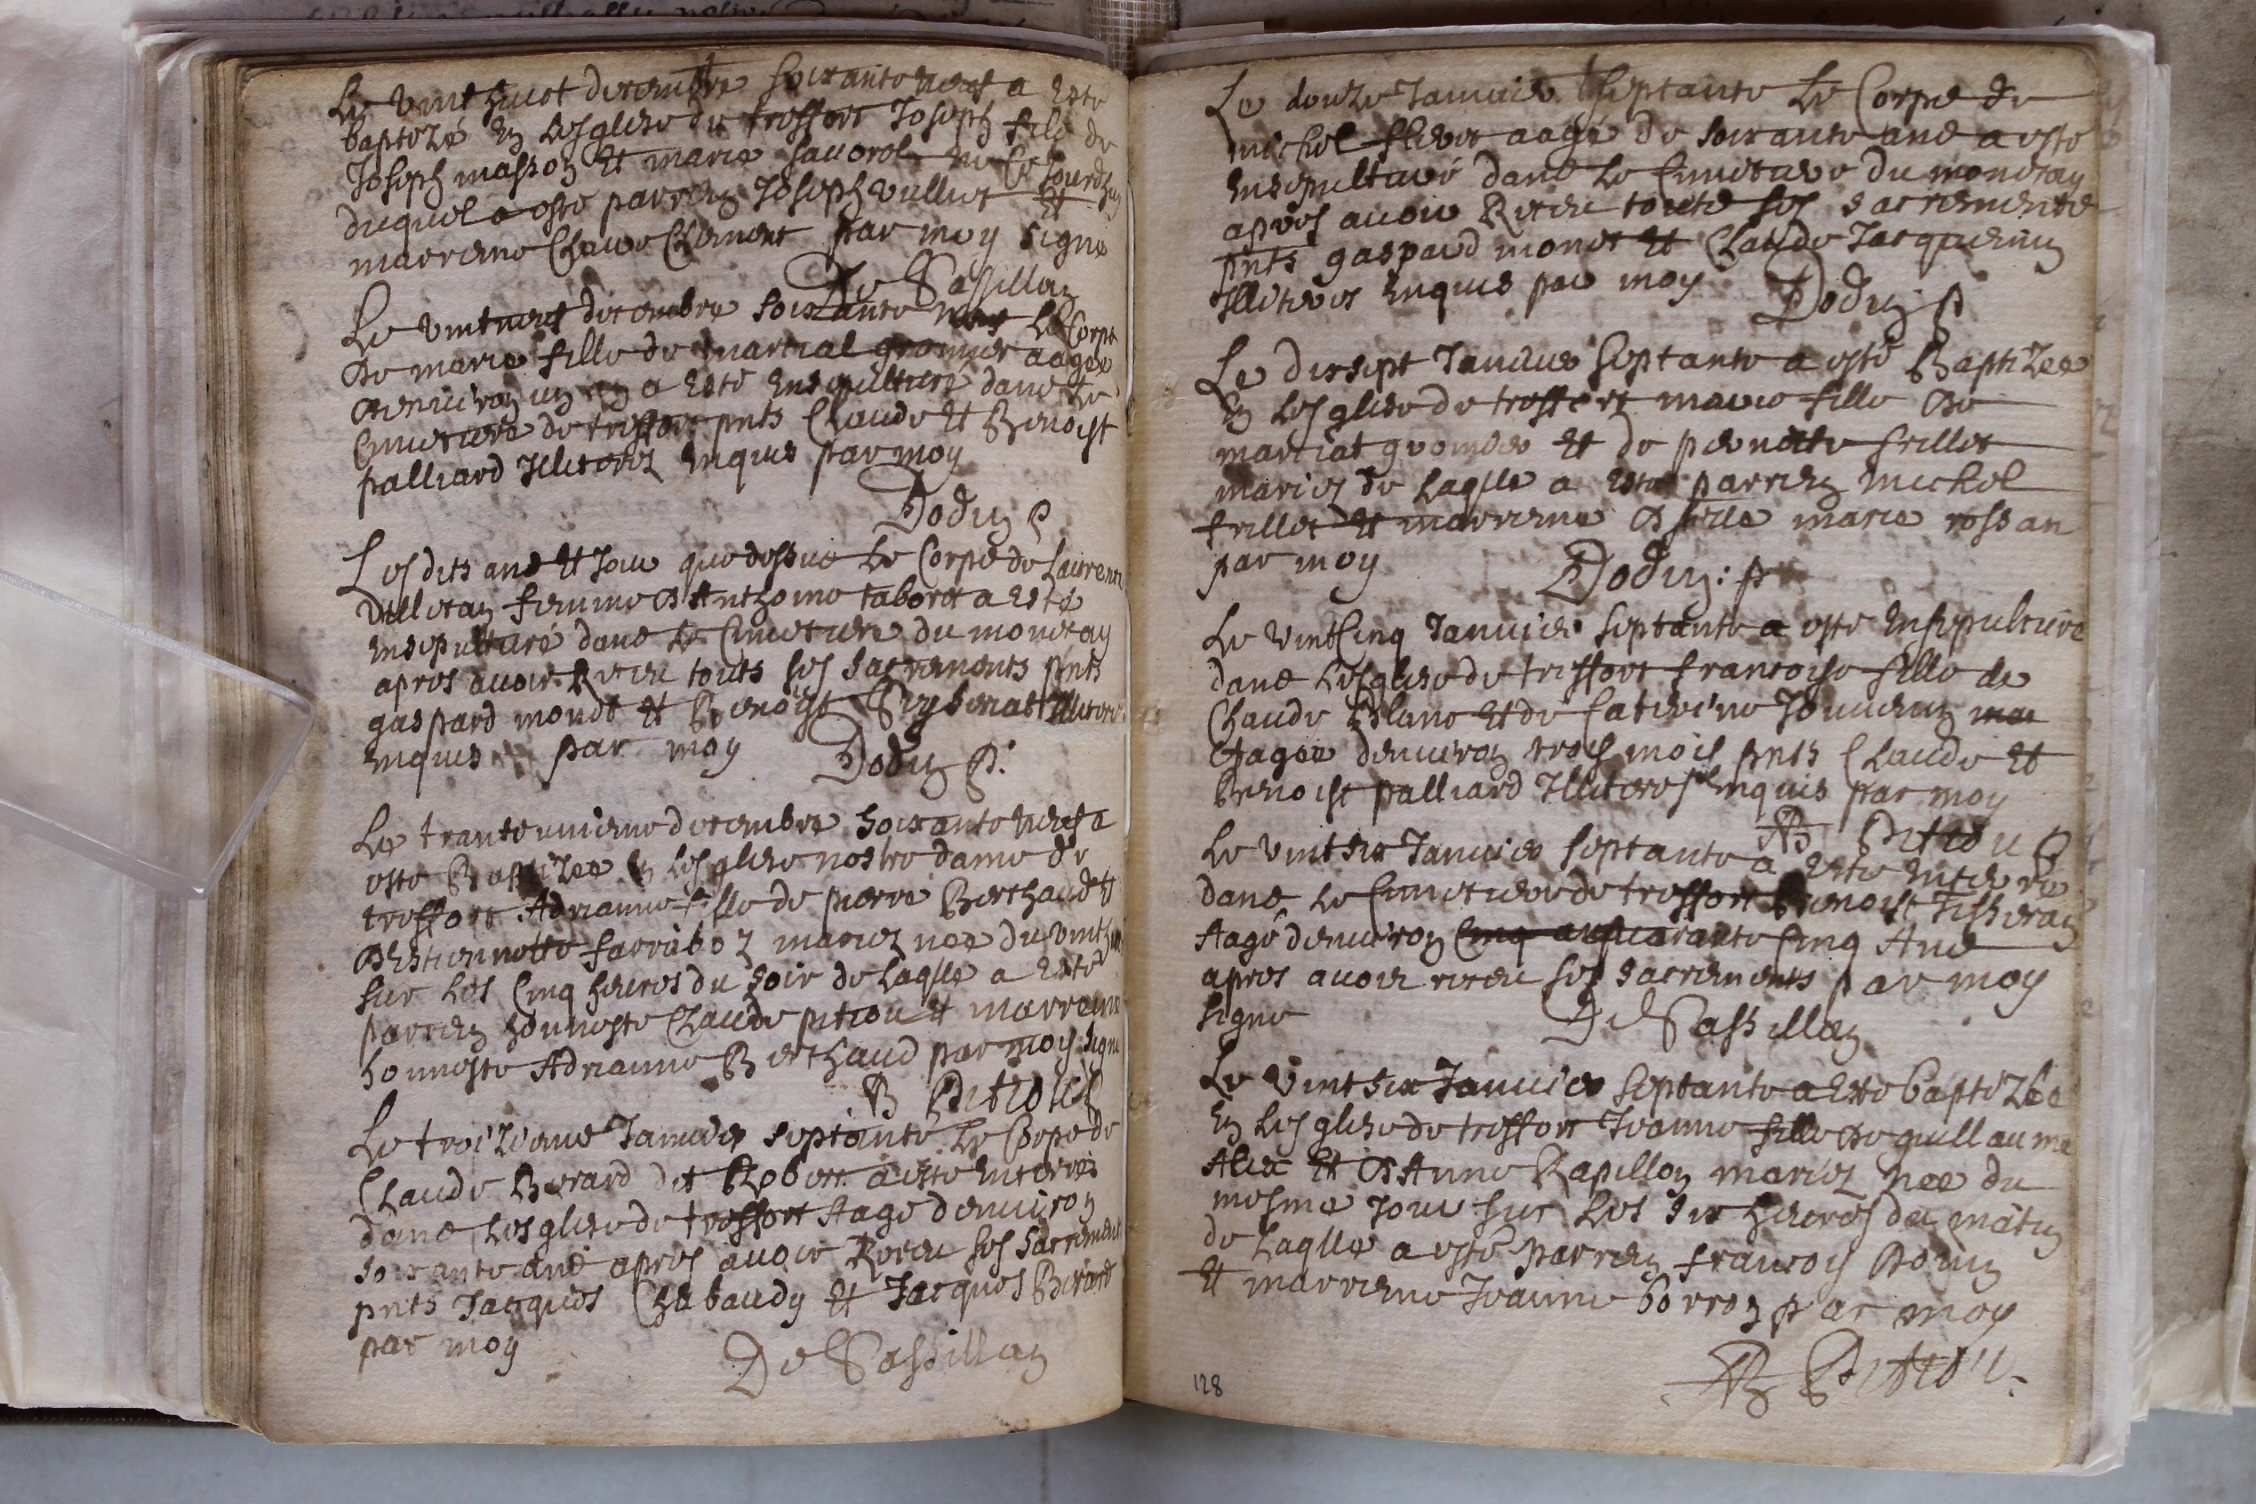 Le vint huict decembre soixante neuf a este
baptizé en lesglise de treffort Joseph fils de
Joseph masson Et marie
duquel a este parrein Joseph vulliet Et
marreine Claire Clement par moy signé
De Sassillan
Le vintneuf decembre soixante neuf Le Corps
de marie fille de martial gromier aagee
denuiron un an a este ensepulturé dans le
Cimetiere de treffort pnts Claude Et Benoist
palliard Illiterez enquis par moy
Dodin p
Lesdits ans Et Jour que dessus Le Corps de Laurence
femme dAnthoine taboret a este
ensepulturé dans le Cimetiere du monetay
apres auoir Receu touts ses sacrements pnts
gaspard monet Et Benoist Illiterez
enquis par moy Dodin p.
Le trante unieme decembre soixante neuf a
este Baptizee en lesglise nostre dame de
treffort Adrianne fille de pierre Berthaud Et
dEstiennette farraboz mariez nee du vint
sur les Cinq heures du soir de laqlle a este
parrein honneste Claude pitiou Et marreine
honneste Adrianne Berthaud par moy signé
B Pitiou p
Le troizieme Januier septante Le Corps de
Claude Berard dit Robert a este enterré
dans lesglise de treffort Aagé denuiron
soixante ans apres auoir Receu ses sacrements
pnts Jacques Chabaudy Et Jacques Berard
par moy
De Sassillan
Le douze Januier septante Le Corps de
michel aagé de soixante ans a este
ensepulturé dans le Cimetiere du monetay
apres auoir Receu touts ses sacrements
pnts gaspard monet Et Claude Jacquemin
Illiteres enquis par moy Dodin p
Le dixsept Januier septante a esté Baptizee
en lesglise de treffort marie fille de
martial gromier Et de pernette frillet
mariez de laqlle a este parrein michel
frillet Et marreine dsselle marie rossan
par moy Dodin: p
Le vintcinq Januier septante a este ensepulturé
dans lesglise de treffort francoise fille de
Claude Blanc Et de Caterine Jouuenin
Aagee denuiron trois mois pnts Claude Et
Benoist palliard Illiteres enquis par moy
B Pitiou p
Le vintsix Januier septante a este enterré
dans le Cimetiere de treffort Benoist Tisseran
Aagé denuiron quarante Cinq Ans
apres auoir receu ses sacrements par moy
signé De Sassillan
Le vintsix Januier septante a este baptizee
en lesglise de treffort Jeanne fille de guillaume
Alix Et dAnne Rapillon mariez nee du
mesme jour sur les six heures du matin
de laqlle a esté parrein francois
Et marreine Jeanne borron par moy
B Pitiou.
128